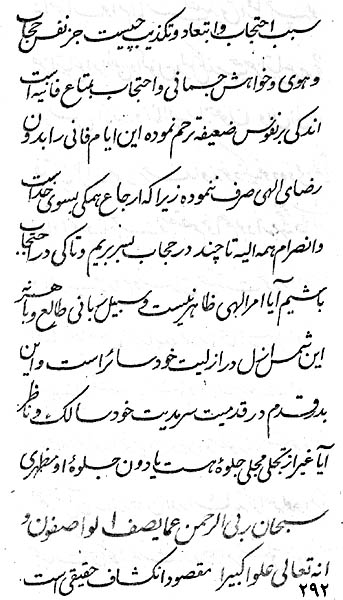 سبب احتجاب و ابتعاد و تکذیب چیست جز نفس حجاب
و هوی و خواهش جسمانی و احتجاب بمتاع فانیه است
اندکی بر نفوس ضعیفه ترحم نموده این ایام فانی را بدون
رضای الهی صرف ننموده زیرا که ارجاع همگی بسوی خداست
و انصرام همه الیه تا چند در حجاب بسر بریم و تا کی در احتجاب
باشیم آیا امر الهی ظاهر نیست و سبیل سبحانی طالع و باهر نه
این شمس ازل در ازلیت خود سائر است و این
بدر قدم در قدمیت سرمدیت خود سالک و ناظر
آیا غیر از تجلی مجلی جلوهٔ هست یا دون جلوهٔ او مظهری
سبحان ربی الرحمن عما یصف الواصفون و
انه تعالی علوا کبیرا مقصود انکشاف حقیقی است
۲۹۲